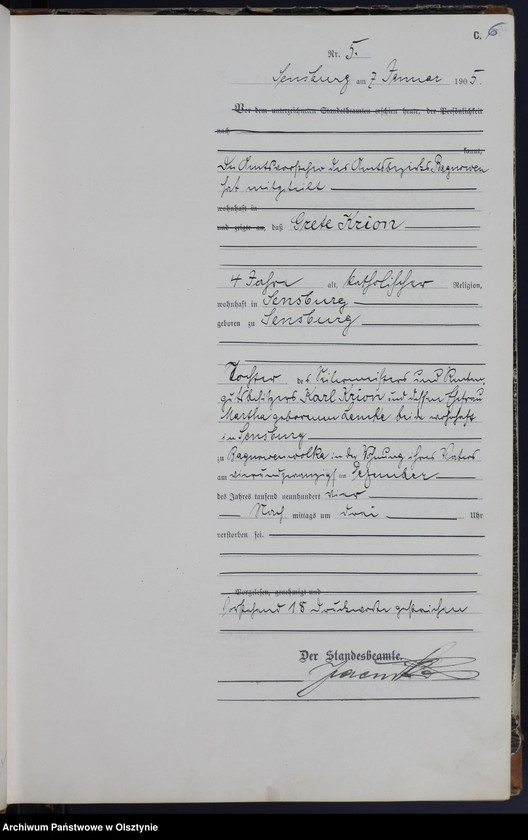 C. 6
Nr. 5.
Sensburg am 7 Januar 1905.
Vor dem unterzeichneten Standesbeamten erschien heute, der Persönlichkeit
nach
kannt,
Der Amtsvorsteher des Amtsbezirks Ragnowen
hat mitgeteilt
wohnhaft in
und zeigte an, daß Grete Krion
4 Jahre alt, katholischer Religion,
wohnhaft in Sensburg
geboren zu Sensburg
Tochter des Seilermeisters und
gutsbesitzers Karl Krion und dessen Ehefrau
Martha geborenen Lemke beide wohnhaft
in Sensburg
zu Ragnowenwolke in der Wohnung ihres Vaters
am vierundzwanzigsten Dezember
des Jahres tausend neunhundert vier
Nach mittags um drei Uhr
verstorben sei.
Vorgelesen, genehmigt und
Vorstehend 18 Druckworte gestrichen
Der Standesbeamte.
Archiwum Państwowe w Olsztynie